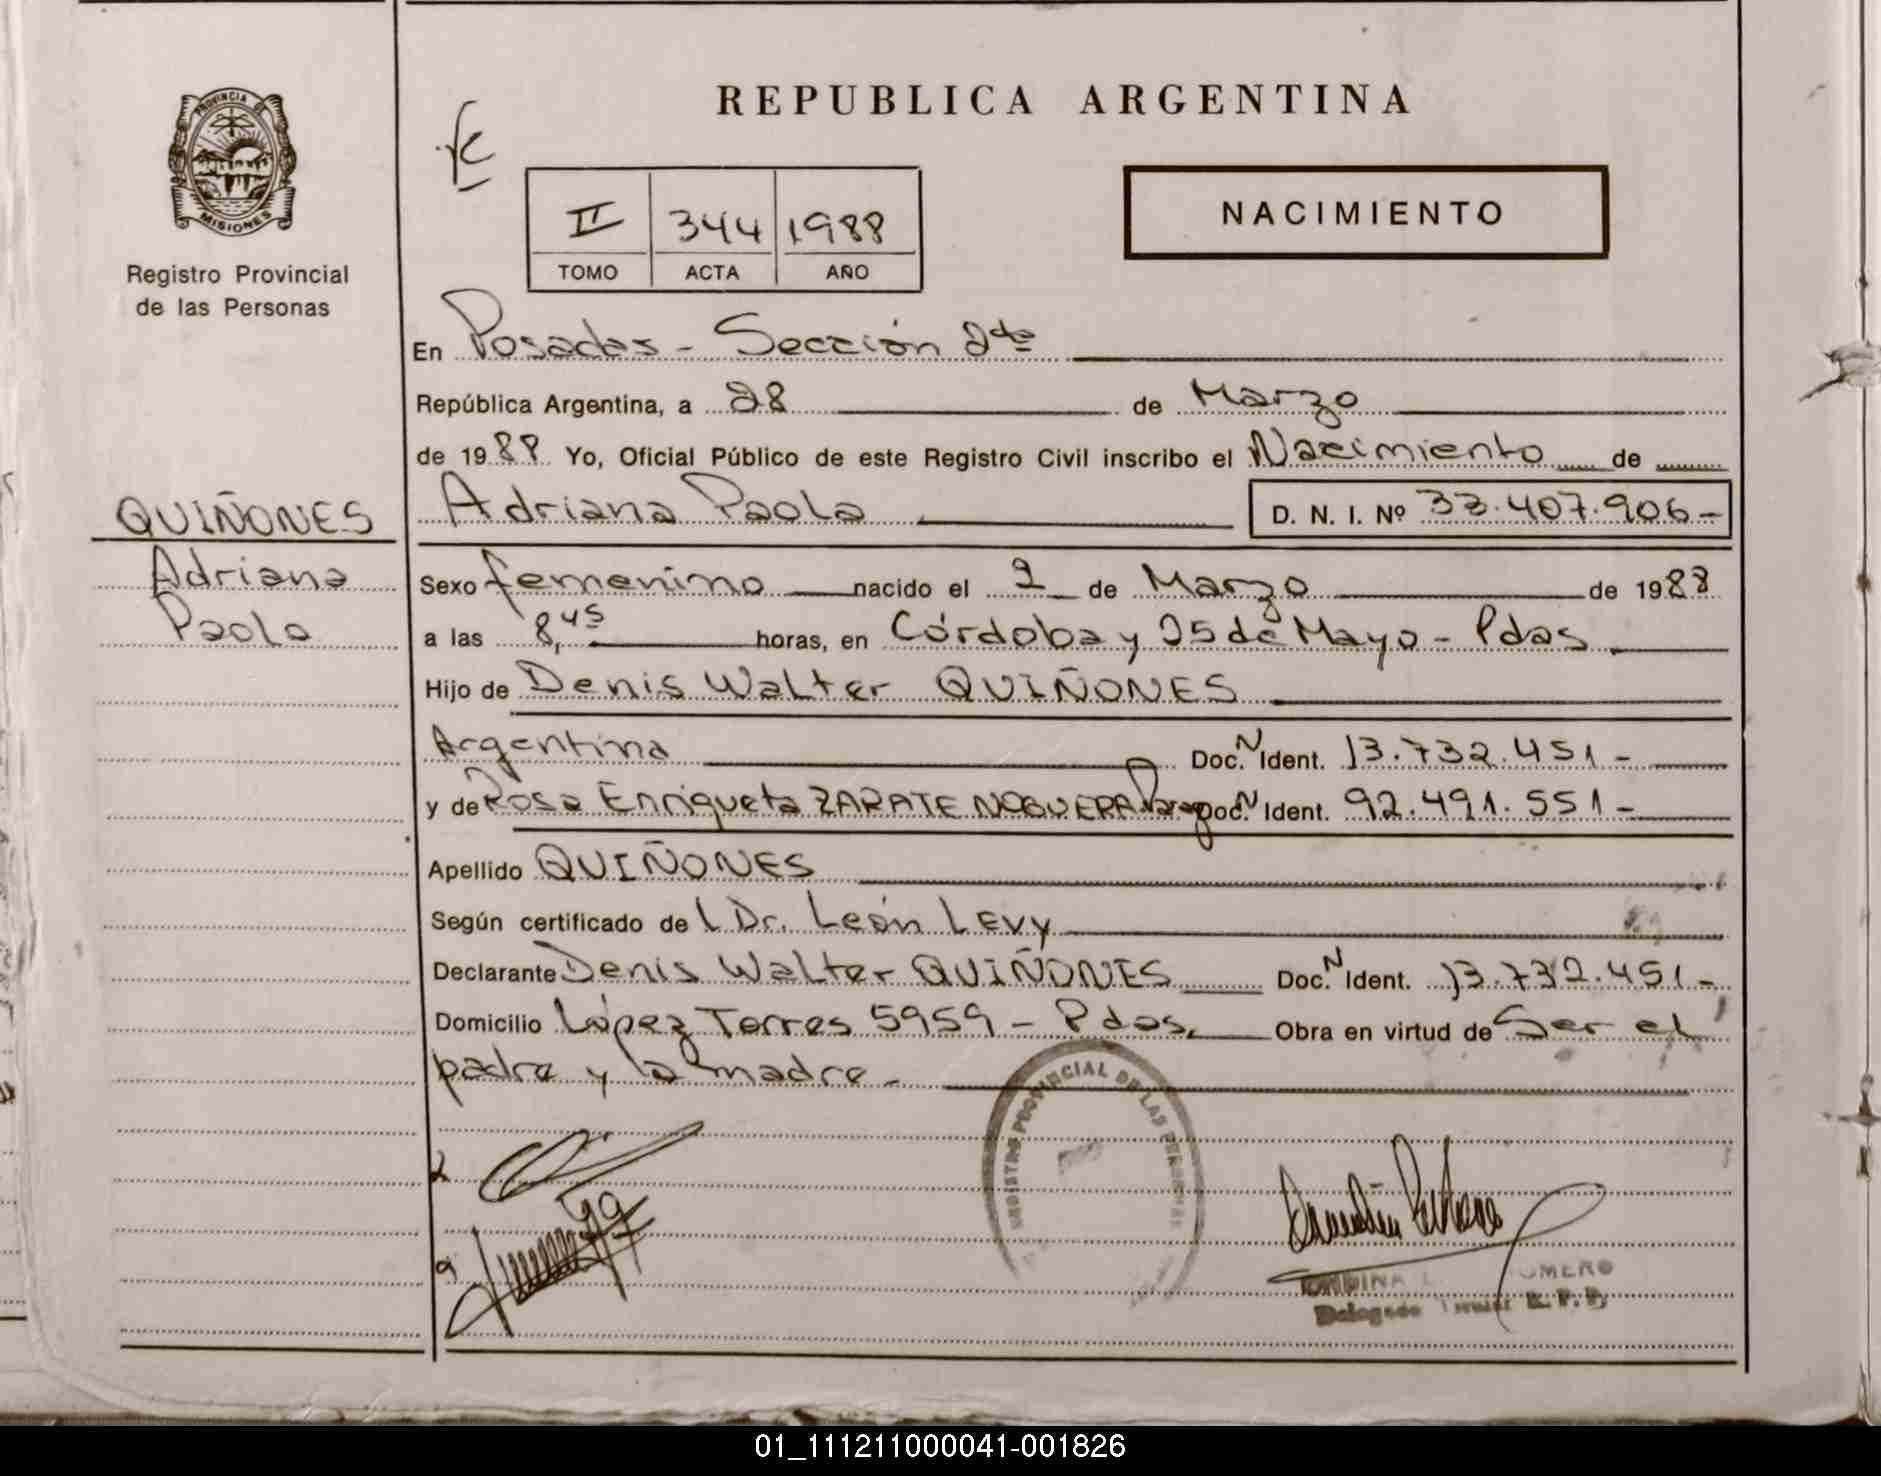 PROVINCIA DE
MISIONES
Registro Provincial
de las Personas
REPUBLICA ARGENTINA
II 344 1988
TOMO ACTA AÑO
NACIMIENTO
En Posadas - Sección 2da
República Argentina, a 28 de Marzo
de 1988 Yo, Oficial Público de este Registro Civil inscribo el Nacimiento de
QUIÑONES
Adriana
Paola
Adriana Paola D. N. I. Nº 33.407.906-
Sexo femenino nacido el 2 de Marzo de 1988
a las 8,45 horas, en Córdoba y 25 de Mayo - Pdas
Hijo de Denis Walter QUIÑONES
Argentina Doc. N Ident. 13.732.451-
y de Rosa Enriqueta ZARATE NOGUERA Parag Doc. N Ident. 92.491.551-
Apellido QUIÑONES
Según certificado de l Dr. León LEVY
Declarante Denis Walter QUIÑONES Doc. N Ident. 13.732.451-
Domicilio López Torres 5959 - Pdas, Obra en virtud de Ser el
padre y la madre -
REGISTRO PROVINCIAL DE LAS PERSONAS
Delegado R. P. P.
01_111211000041-001826